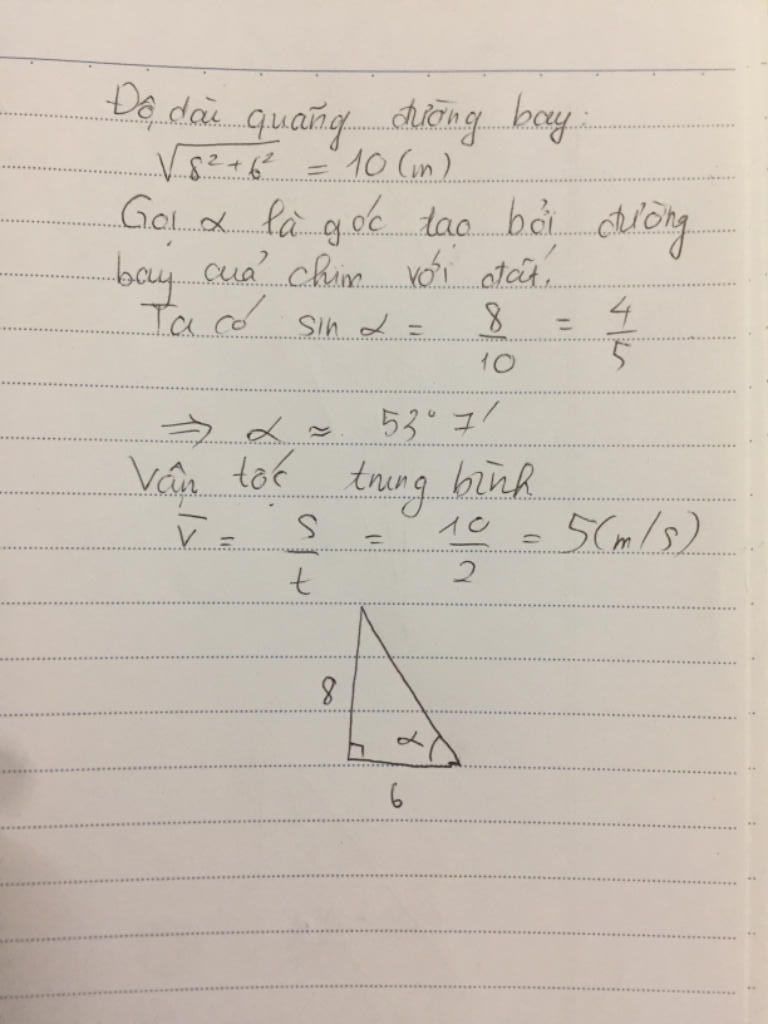 Độ dài quãng đường bay:
√(8² + 6²) = 10 (m)
Gọi α là góc tạo bởi đường
bay của chim với đất.
Ta có sin α = 8/10 = 4/5
⇒ α ≈ 53° 7'
Vận tốc trung bình
v̅ = S/t = 10/2 = 5 (m/s)
8
α
6